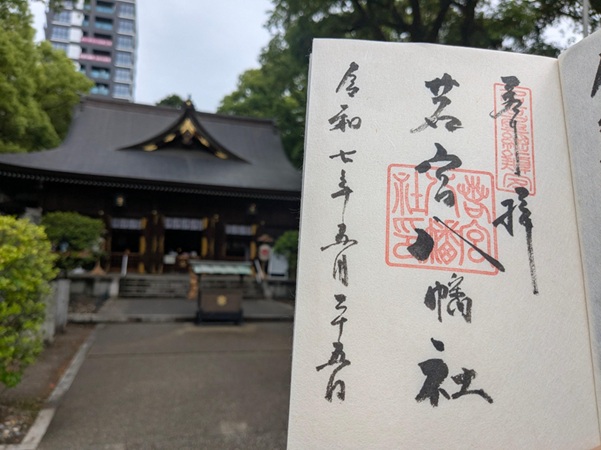 奉拝
若宮八幡社
若宮
八幡
社印
令和七年五月二十五日